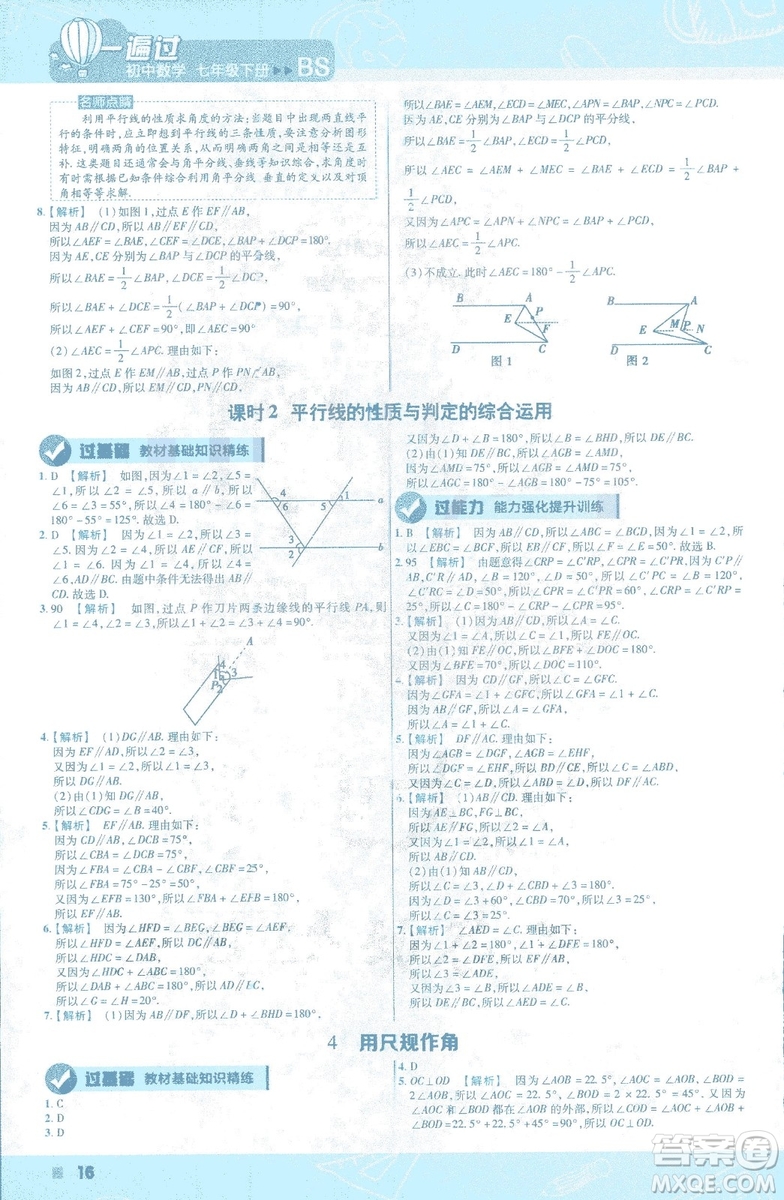 一遍过
初中数学 七年级下册 ▶▶ BS
名师点睛
利用平行线的性质求角度的方法:当题目中出现两直线平
行的条件时,应立即想到平行线的三条性质,要注意分析图形
特征,明确两角的位置关系,进而明确两角是相等还是互
补.这类题还通常会与角平分线、垂线等知识综合,求角度
时有时需根据已知条件综合利用角平分线、垂直的定义以及对顶
角相等等求解.
8.【解析】 (1)如图1,过点E作EF∥AB,
因为AB∥CD,所以AB∥EF∥CD,
所以∠AEF=∠BAE,∠FEC=∠DCE,∠BAP+∠DCP=180°.
因为AE,CE分别为∠BAP与∠DCP的平分线,
所以∠BAE=1/2∠BAP,∠DCE=1/2∠DCP,
所以∠BAE+∠DCE=1/2(∠BAP+∠DCP)=90°,
所以∠AEF+∠FEC=90°,即∠AEC=90°.
(2)∠AEC=1/2∠APC.理由如下:
如图2,过点E,P分别作EM∥CD,PN∥CD.
因为AB∥CD,所以AB∥EM∥PN∥CD,
所以∠BAE=∠AEM,∠ECD=∠MEC,∠APN=∠BAP,∠NPC=∠PCD.
因为AE,CE分别为∠BAP与∠DCP的平分线,
所以∠BAE=1/2∠BAP,∠ECD=1/2∠PCD,
所以∠AEC=∠AEM+∠MEC=∠BAE+∠ECD=1/2∠BAP+
1/2∠PCD,
又因为∠APC=∠APN+∠NPC=∠BAP+∠PCD,
所以∠AEC=1/2∠APC.
(3)不成立.此时∠AEC=180°-1/2∠APC.
B A P E F D C
图1
B A E M P N D C
图2
课时2 平行线的性质与判定的综合运用
过基础 教材基础知识精练
1. D 【解析】 如图,因为∠1=∠2,∠5=
∠1,所以∠2=∠5,所以a∥b,所以
∠3=∠6=55°,所以∠4=180°-∠6=
180°-55°=125°.故选D.
4 6 5 1 a
3 2 b
2. D 【解析】 因为AB∥CD,所以∠1=
∠5.因为∠1=∠2,所以∠5=
∠2,所以AE∥CF,所以∠3=
∠4.由题中条件无法得出AB=
CD.故选D.
3. 90 【解析】 如图,过点P作刀片两条边缘线的平行线PA,则
∠1=∠3,∠2=∠4,所以∠1+∠2=∠3+∠4=90°.
A 4 1 3 P 2
4.【解析】 (1)DG∥AB.理由如下:
因为EF∥AD,所以∠2=∠3.
又因为∠1=∠2,所以∠1=∠3,
所以DG∥AB.
(2)由(1)知DG∥AB,
所以∠CDG=∠B=40°.
5.【解析】 EF∥AB.理由如下:
因为CD∥AB,∠DCB=75°,
所以∠CBA=∠DCB=75°.
因为∠FBA=∠CBA-∠CBF,∠CBF=25°,
所以∠FBA=75°-25°=50°.
又因为∠EFB=130°,所以∠FBA+∠EFB=180°,
所以EF∥AB.
6.【解析】 因为∠HFD=∠BEG,∠BEG=∠AEF,
所以∠HFD=∠AEF,所以DC∥AB,
所以∠HDC=∠DAB.
因为∠HDC+∠ABC=180°,
所以∠DAB+∠ABC=180°,
所以AD∥BC.
7.【解析】 (1)因为AB∥DF,所以∠D+∠BHD=180°.
又因为∠D+∠B=180°,所以∠B=∠BHD,所以DE∥BC.
(2)由(1)知DE∥BC,所以∠AGB=∠AMD.
因为∠AMD=75°,所以∠AGB=75°,
所以∠AGC=180°-∠AGB=180°-75°=105°.
过能力 能力强化提升训练
1. B 【解析】 因为AB∥CD,所以∠ABC=∠BCD,所
以∠EBC=∠BCF,所以BE∥CF,所以∠F=∠E=50°.故选B.
2. 95 【解析】 由题意得∠CRP=∠C′RP,∠CPR=∠C′PR.因为C′P∥
AB,C′R∥AD,所以∠B=∠C′PC=120°,∠D=∠C′RC=50°,
所以∠CPR=60°,∠CRP=∠C′RP=
25°,所以∠C=180°-∠CRP-∠CPR=95°.
3.【解析】 (1)因为AB∥CD,所以∠A=∠C.
又因为∠1=∠A,所以∠1=∠C,所以FE∥OC.
(2)由(1)知FE∥OC,所以∠BFE+∠DOC=180°.
又因为∠BFE=70°,所以∠DOC=110°.
4.【解析】 因为CD∥GF,所以∠C=∠GFC.
因为∠GFA=∠1+∠GFC,所以∠GFA=∠1+∠C.
因为AB∥GF,所以∠A=∠GFA,
所以∠A=∠1+∠C.
5.【解析】 DF∥AC.理由如下:
因为∠AGB=∠DGF,∠AGB=∠EHF,
所以∠DGF=∠EHF,所以BD∥CE,所以∠C=∠ABD.
又因为∠C=∠D,所以∠D=∠ABD,所以DF∥AC.
6.【解析】 (1)AB∥CD.理由如下:
因为AE⊥BC,FG⊥BC,
所以AE∥FG,所以∠2=∠A.
又因为∠1=∠2,所以∠1=∠A,
所以AB∥CD.
(2)由(1)知AB∥CD,
所以∠C=∠3,∠D+∠CBD+∠3=180°.
因为∠D=∠3+60°,∠CBD=70°,
所以∠C=∠3=25°.
7.【解析】 ∠AED=∠C.理由如下:
因为∠1+∠2=180°,∠1+∠DFE=180°,
所以∠2=∠DFE,所以AB∥EF,
所以∠3=∠ADE,
又因为∠3=∠B,
所以∠B=∠ADE,所以DE∥BC,
所以∠AED=∠C.
4 用尺规作角
过基础 教材基础知识精练
1. C
2. D
3. D
4. D
5. OC⊥OD 【解析】 因为∠AOB=22.5°,∠AOC=∠AOB,∠AOD=
2∠AOB,所以∠AOC=22.5°,∠AOD=
因为∠AOC和∠AOD都在∠AOB的外部,所以OC⊥OD.
16
答案圈
MXQE.COM